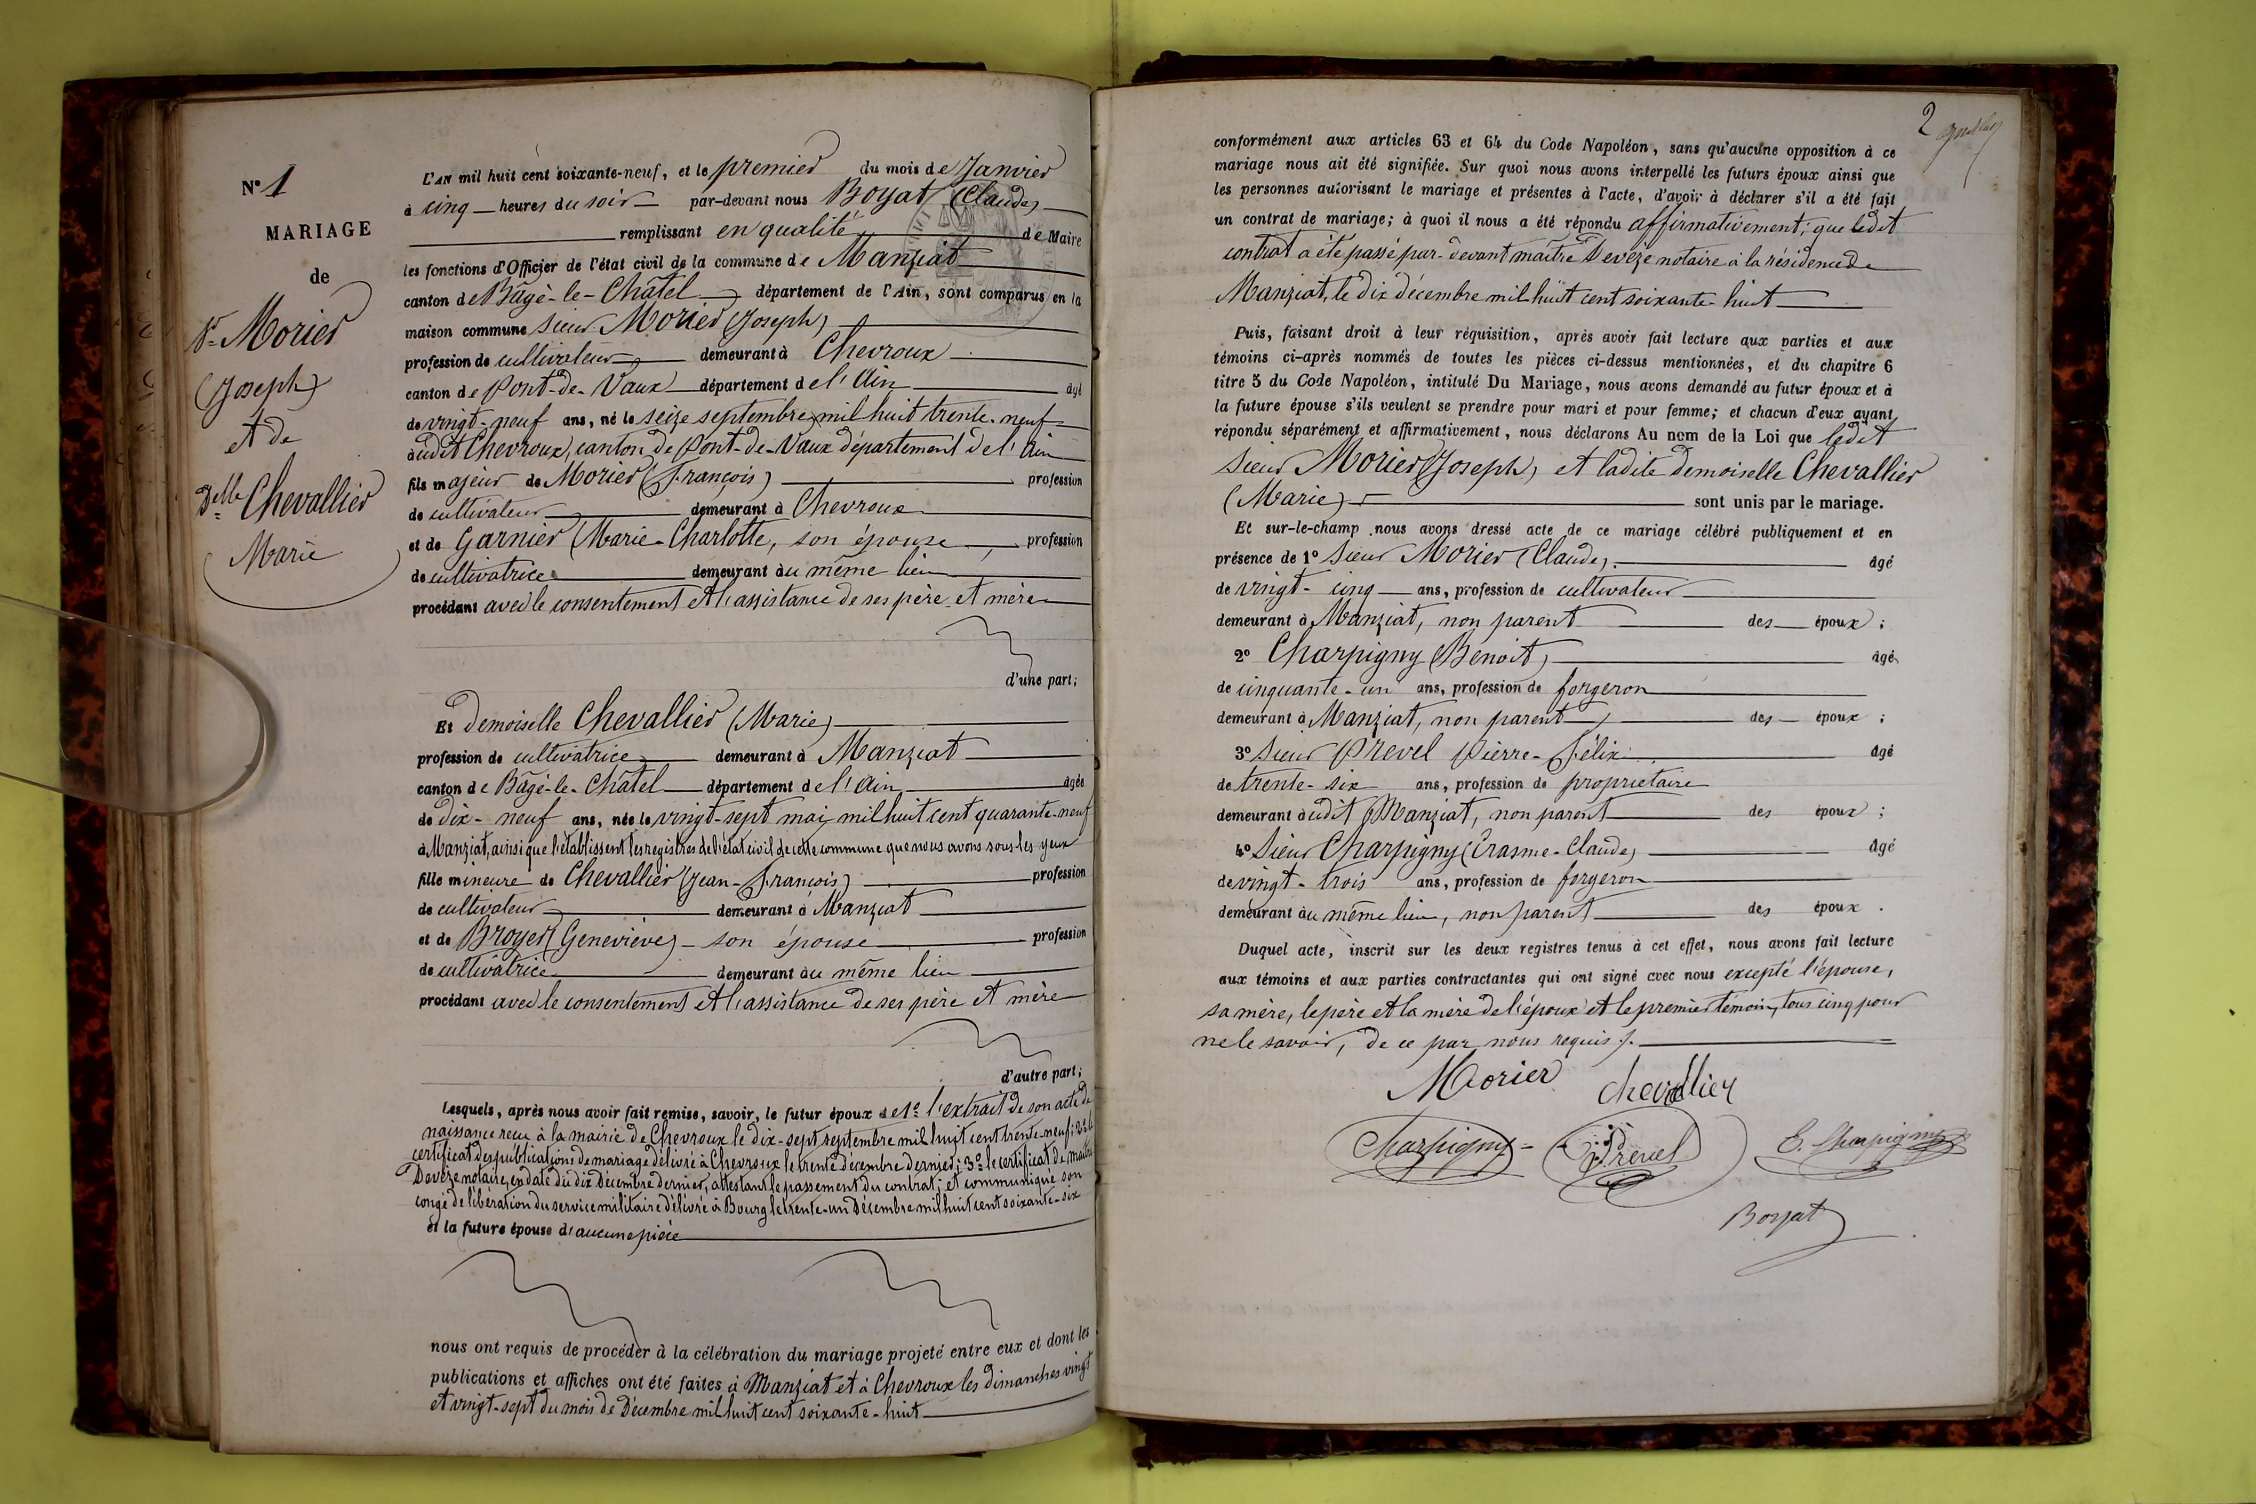 N° 1
MARIAGE
de
Sr Morier
(Joseph)
et de
Delle Chevallier
Marie
L'AN mil huit cent soixante-neuf, et le premier du mois de Janvier
à cinq heures du soir par-devant nous Boyat (Claude)
remplissant en qualité de Maire
les fonctions d'Officier de l'état civil de la commune de Manziat
canton de Bâgé-le-Châtel département de l'Ain, sont comparus en la
maison commune Sieur Morier (Joseph)
profession de cultivateur demeurant à Chevroux
canton de Pont-de-Vaux département de l'Ain âgé
de vingt-neuf ans, né le seize septembre mil huit trente-neuf
audit Chevroux, canton de Pont-de-Vaux département de l'Ain
fils majeur de Morier (François) profession
de cultivateur demeurant à Chevroux
et de Garnier (Marie-Charlotte, son épouse, profession
de cultivatrice demeurant au même lieu
procédant avec le consentement et l'assistance de ses père et mère
d'une part;
Et demoiselle Chevallier (Marie)
profession de cultivatrice demeurant à Manziat
canton de Bâgé-le-Châtel département de l'Ain âgée
de dix-neuf ans, née le vingt-sept mai mil huit cent quarante-neuf
à Manziat, ainsi que l'établissent les registres de l'état civil de cette commune que nous avons sous les yeux
fille mineure de Chevallier (Jean-François) profession
de cultivateur demeurant à Manziat
et de Broyer (Geneviève) son épouse profession
de cultivatrice demeurant au même lieu
procédant avec le consentement et l'assistance de ses père et mère
d'autre part;
Lesquels, après nous avoir fait remise, savoir, le futur époux de 1° l'extrait de son acte de
naissance reçu à la mairie de Chevroux le dix-sept septembre mil huit cent trente-neuf; 2° le
certificat des publications de mariage délivré à Chevroux le trente décembre dernier; 3° le certificat de maître
Devèze notaire, en date du dix Décembre dernier, attestant le passement du contrat; et communiqué son
congé de libération du service militaire délivré à Bourg le trente-un Décembre mil huit cent soixante-six
et la future épouse d'aucune pièce
nous ont requis de procéder à la célébration du mariage projeté entre eux et dont les
publications et affiches ont été faites à Manziat et à Chevroux les dimanches vingt
et vingt-sept du mois de Décembre mil huit cent soixante-huit
2
conformément aux articles 63 et 64 du Code Napoléon, sans qu'aucune opposition à ce
mariage nous ait été signifiée. Sur quoi nous avons interpellé les futurs époux ainsi que
les personnes autorisant le mariage et présentes à l'acte, d'avoir à déclarer s'il a été fait
un contrat de mariage; à quoi il nous a été répondu affirmativement; que ledit
contrat a été passé par-devant maître Devèze notaire à la résidence de
Manziat, le dix décembre mil huit cent soixante-huit
Puis, faisant droit à leur réquisition, après avoir fait lecture aux parties et aux
témoins ci-après nommés de toutes les pièces ci-dessus mentionnées, et du chapitre 6
titre 5 du Code Napoléon, intitulé Du Mariage, nous avons demandé au futur époux et à
la future épouse s'ils veulent se prendre pour mari et pour femme; et chacun d'eux ayant
répondu séparément et affirmativement, nous déclarons Au nom de la Loi que ledit
Sieur Morier (Joseph) et ladite demoiselle Chevallier
(Marie) sont unis par le mariage.
Et sur-le-champ nous avons dressé acte de ce mariage célébré publiquement et en
présence de 1° Sieur Morier (Claude) âgé
de vingt-cinq ans, profession de cultivateur
demeurant à Manziat, non parent des époux;
2° Charpigny (Benoit) âgé
de cinquante-un ans, profession de forgeron
demeurant à Manziat, non parent, des époux;
3° Sieur Prevel Pierre-Félix âgé
de trente-six ans, profession de propriétaire
demeurant audit Manziat, non parent des époux;
4° Sieur Charpigny (Erasme-Claude) âgé
de vingt-trois ans, profession de forgeron
demeurant au même lieu, non parent des époux.
Duquel acte, inscrit sur les deux registres tenus à cet effet, nous avons fait lecture
aux témoins et aux parties contractantes qui ont signé avec nous excepté l'épouse,
sa mère, le père et la mère de l'époux et le premier témoin, tous cinq pour
ne le savoir, de ce par nous requis.
Morier chevallier
Charpigny Prevel E. Charpigny
Boyat